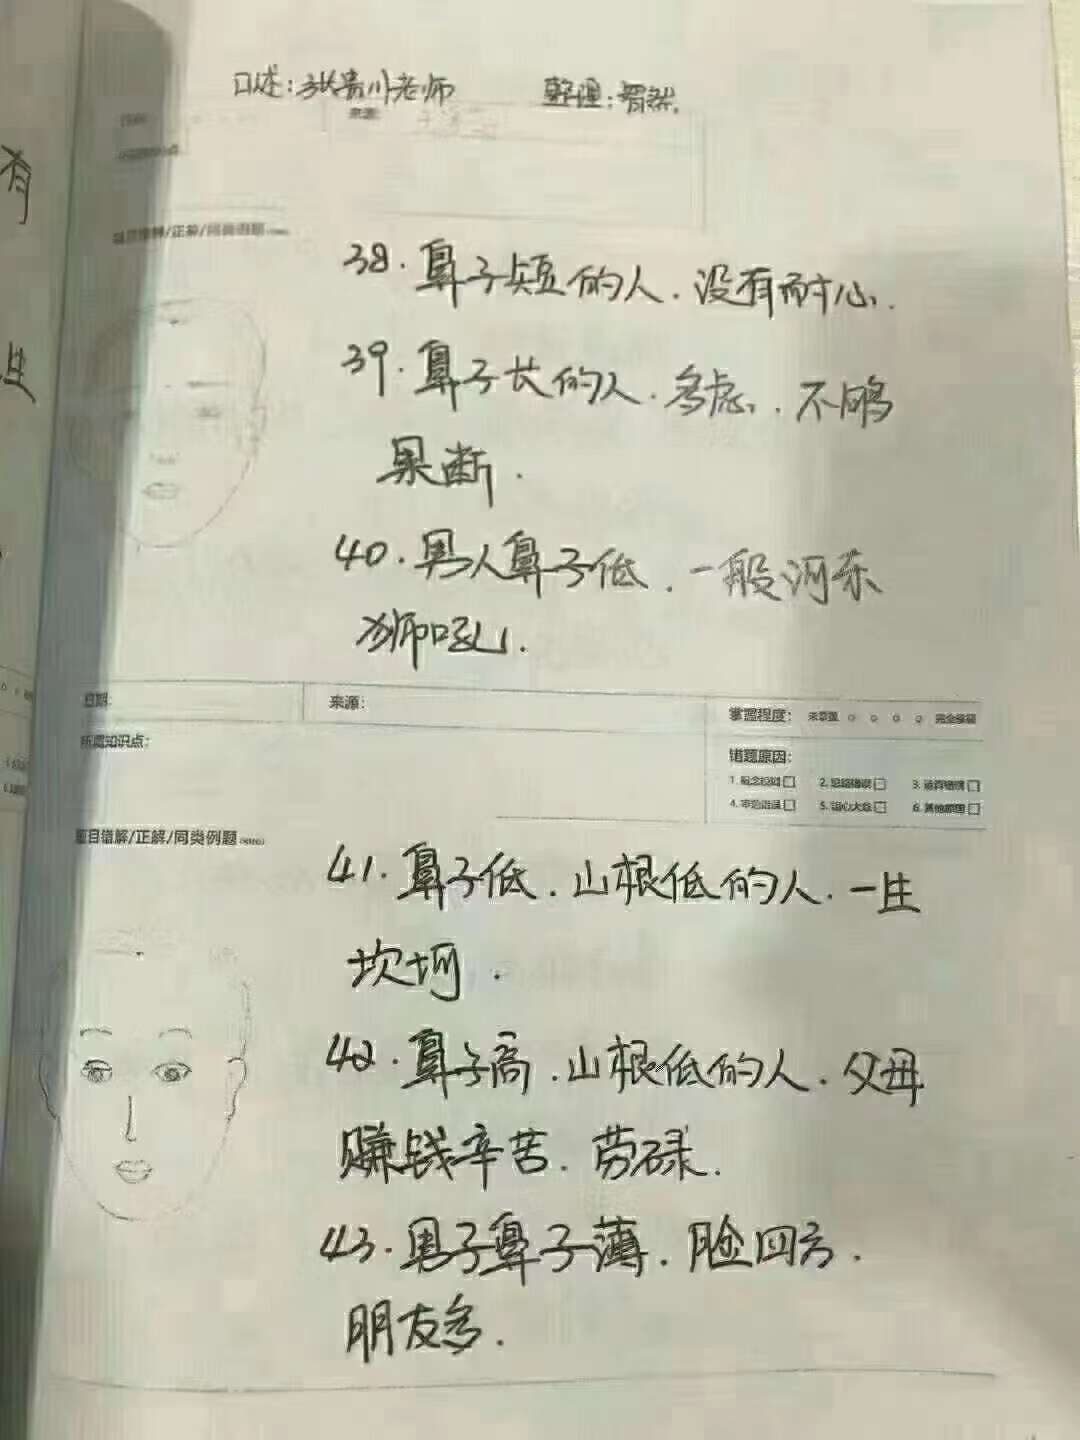 口述:张贵川老师 整理:智然.
来源:
题目错解/正解/同类例题
38.鼻子短的人.没有耐心.
39.鼻子长的人.多虑.不够
果断.
40.男人鼻子低.一般河东
狮吼.
日期: 来源: 掌握程度: 未掌握 ○ ○ ○ ○ 完全掌握
所属知识点: 错题原因:
1.概念模糊□ 2.思路错误□ 3.运算错误□
4.审题错误□ 5.粗心大意□ 6.其他原因□
题目错解/正解/同类例题
41.鼻子低.山根低的人.一生
坎坷.
42.鼻子高.山根低的人.父母
赚钱辛苦.劳碌.
43.男子鼻子薄.脸四方.
朋友多.
有
生